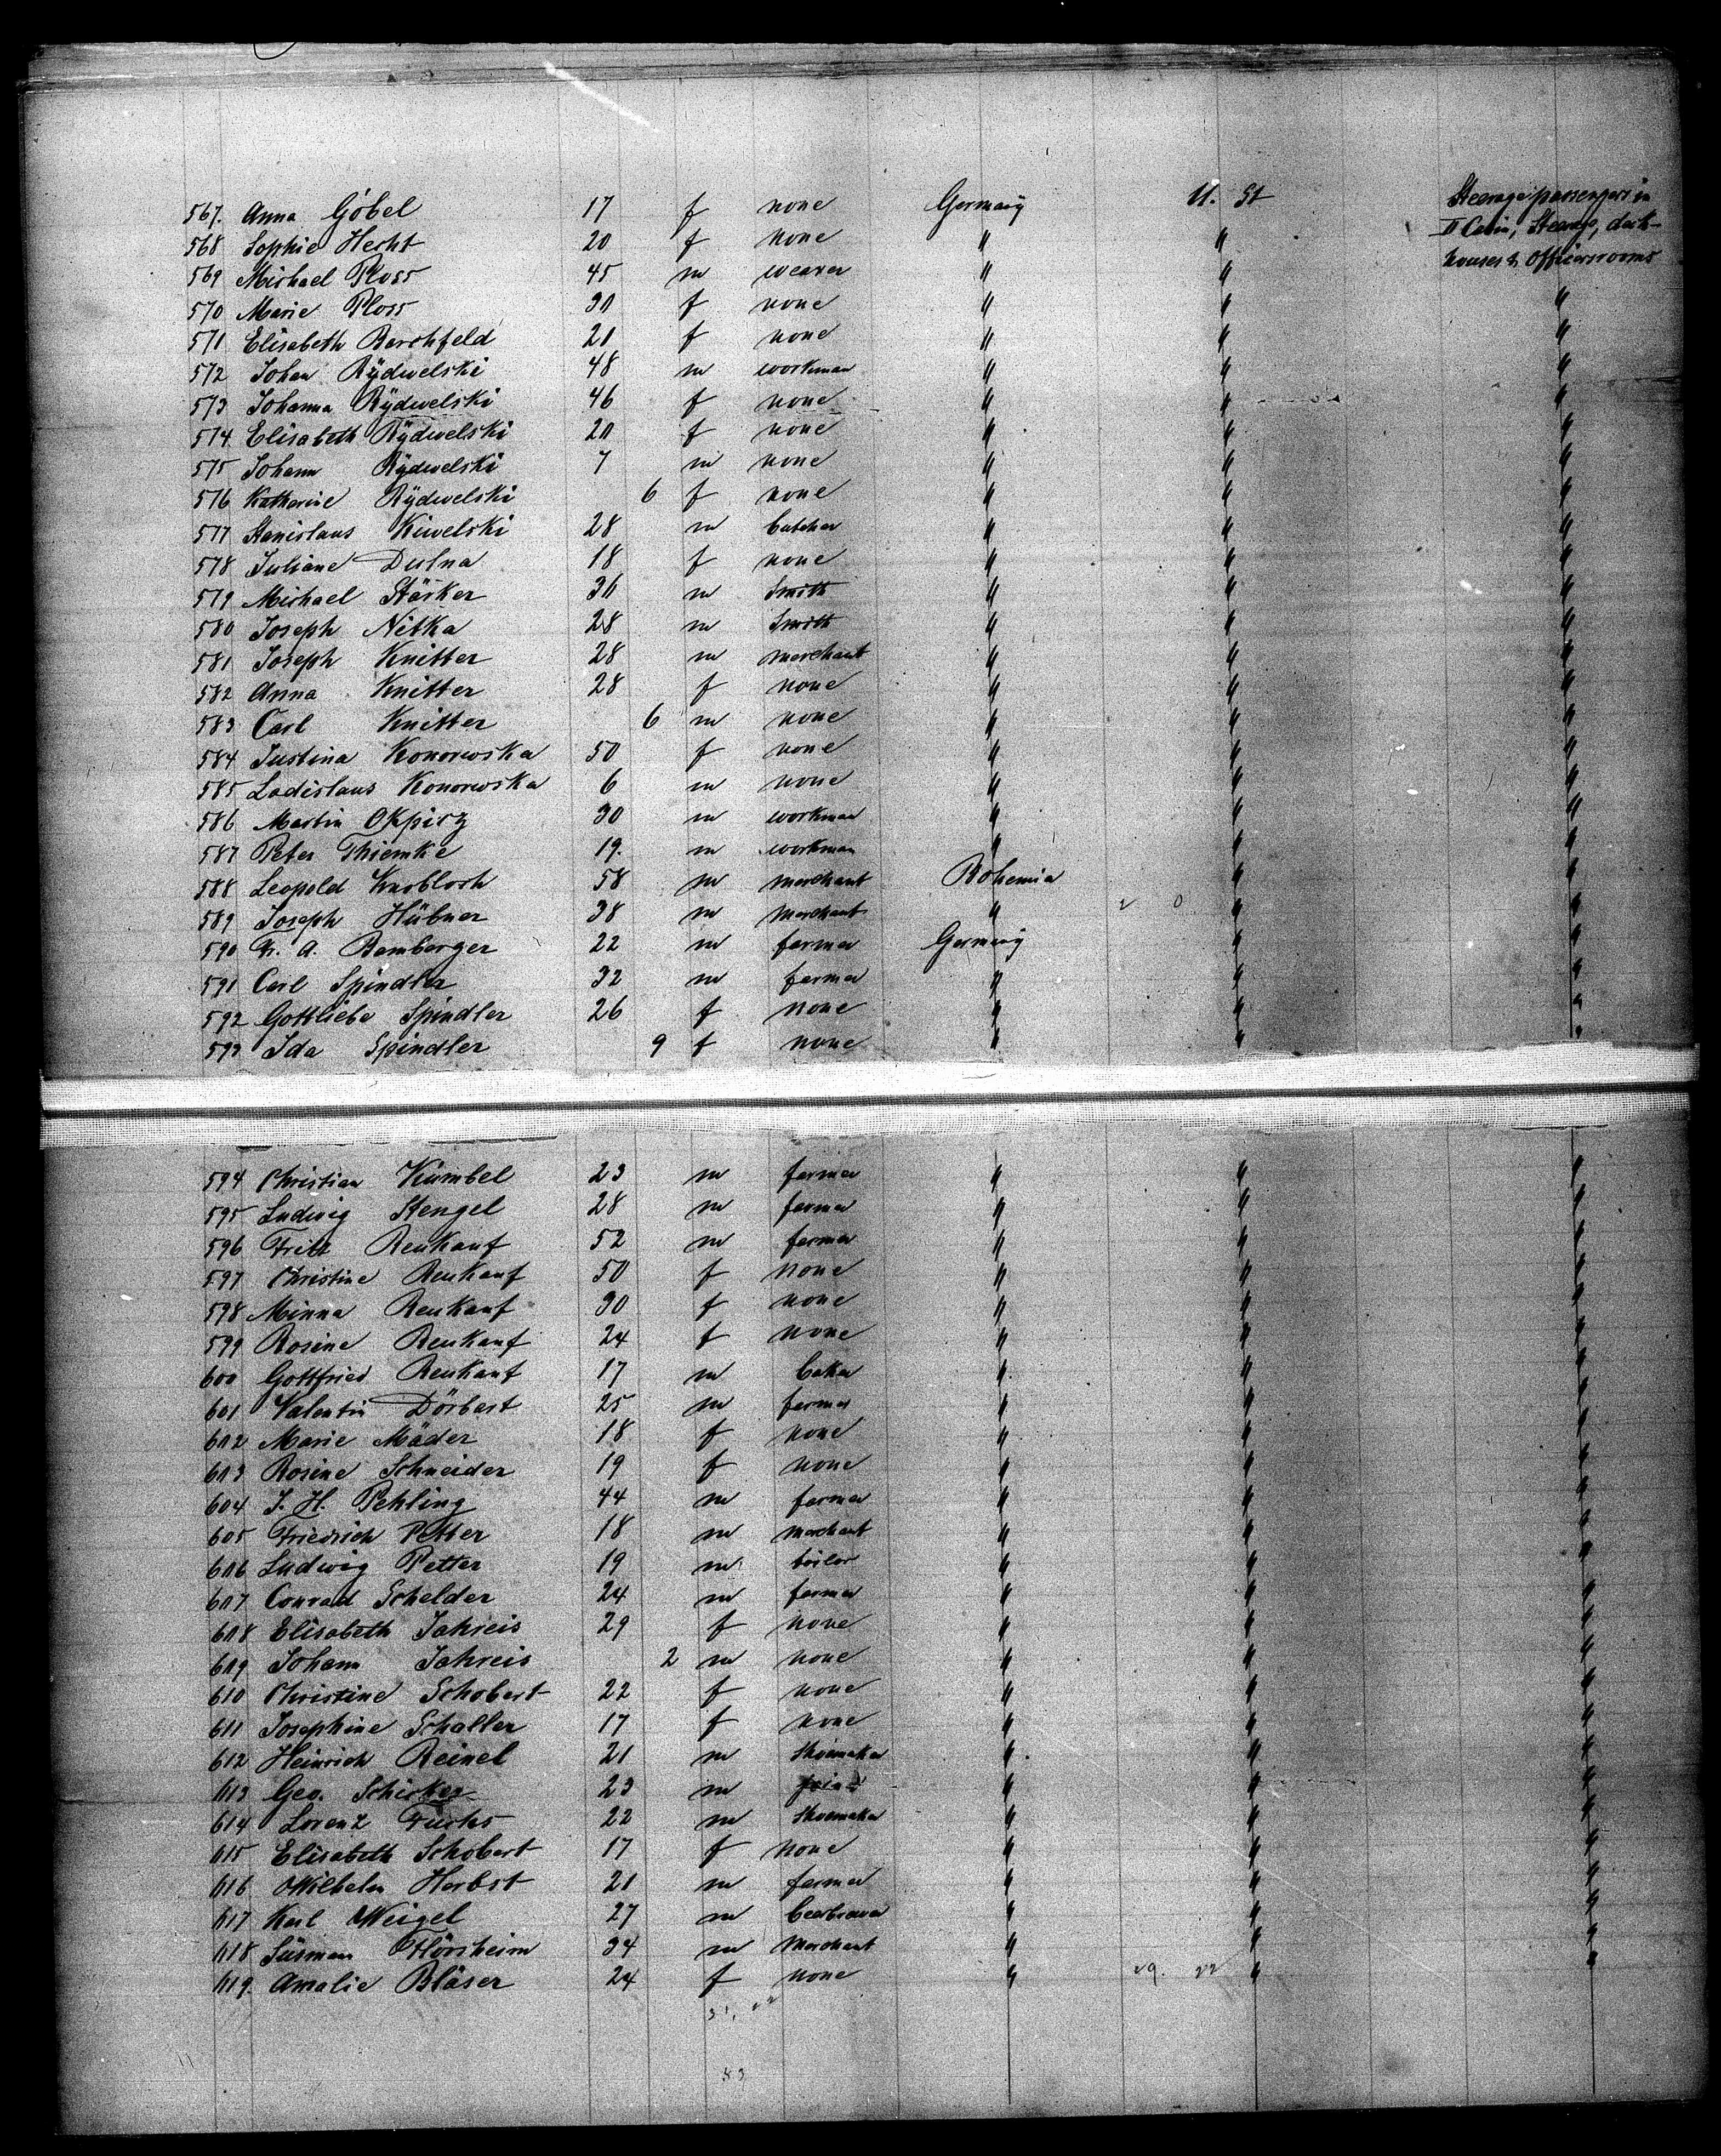 567. Anna Göbel 17 f none Germany U. St Steerage passengers in
568 Sophie Hecht 20 f none " " II Cabin, Steerage, deck-
569 Michael Ploss 45 m weaver " " houses & Officersrooms
570 Marie Ploss 31 f none " " "
571 Elisabeth Barchfeld 21 f none " " "
572 Johan Rÿdwelski 48 m workman " " "
573 Johanna Rÿdwelski 46 f none " " "
574 Elisabeth Rÿdwelski 21 f none " " "
575 Johann Rÿdwelski 7 m none " " "
576 Katharine Rÿdwelski 6 f none " " "
577 Stanislaus Kiwelski 28 m butcher " " "
578 Juliane Dulna 18 f none " " "
579 Michael Stärker 31 m Smith " " "
580 Joseph Nitka 28 m Smith " " "
581 Joseph Knitter 28 m merchant " " "
582 Anna Knitter 28 f none " " "
583 Carl Knitter 6 m none " " "
584 Justina Konorwska 50 f none " " "
585 Ladislaus Konorwska 6 m none " " "
586 Martin Okpirz 30 m workman " " "
587 Peter Thiemke 19. m workman " " "
588 Leopold Knobloch 58 m merchant Bohemia " "
589 Joseph Hübner 38 m merchant " 2 0 " "
590 Fr. A. Bamberger 22 m farmer Germany " "
591 Carl Spindler 32 m farmer " " "
592 Gottliebe Spindler 26 f none " " "
593 Ida Spindler 9 f none " " "
594 Christian Kümbel 23 m farmer " " "
595 Ludwig Stengel 28 m farmer " " "
596 Fritz Reukauf 52 m farmer " " "
597 Christine Reukauf 50 f none " " "
598 Minna Reukauf 30 f none " " "
599 Rosine Reukauf 24 f none " " "
600 Gottfried Reukauf 17 m baker " " "
601 Valentin Dörbart 25 m farmer " " "
602 Marie Mäder 18 f none " " "
603 Rosine Schneider 19 f none " " "
604 J. H. Pehling 44 m farmer " " "
605 Friedrich Petter 18 m merchant " " "
606 Ludwig Petter 19 m tailor " " "
607 Conrad Schelder 24 m farmer " " "
608 Elisabeth Jahreis 29 f none " " "
609 Johann Jahreis 2 m none " " "
610 Christine Schobert 22 f none " " "
611 Josephine Schaller 17 f none " " "
612 Heinrich Reinel 21 m Shoemaker " " "
613 Geo. Schicker 23 m " " "
614 Lorenz Fuchs 22 m Shoemaker " " "
615 Elisabeth Schobert 17 f none " " "
616 Wilhelm Herbst 21 m farmer " " "
617 Karl Weigel 27 m beerbrewer " " "
618 Süsman Flörsheim 34 m Merchant " " "
619. Amalie Bläser 24 f none " 29. 22 "
31, 22
53